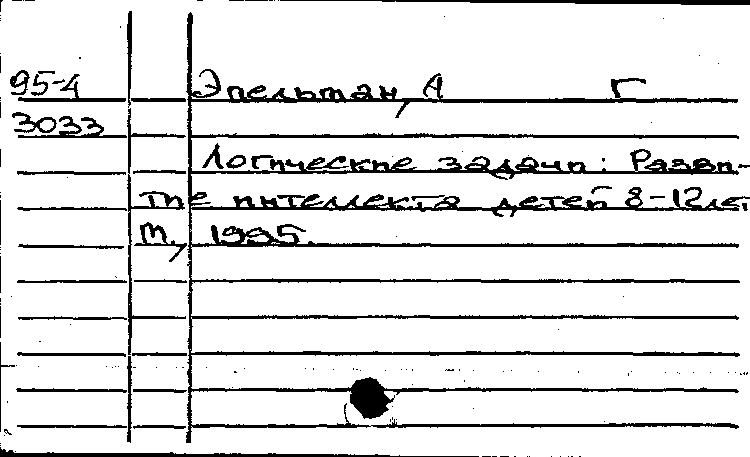 95-4 Эпельман, А Г
3033
Логические задачи: Разви-
тие интеллекта детей 8-12 лет
М., 1995.